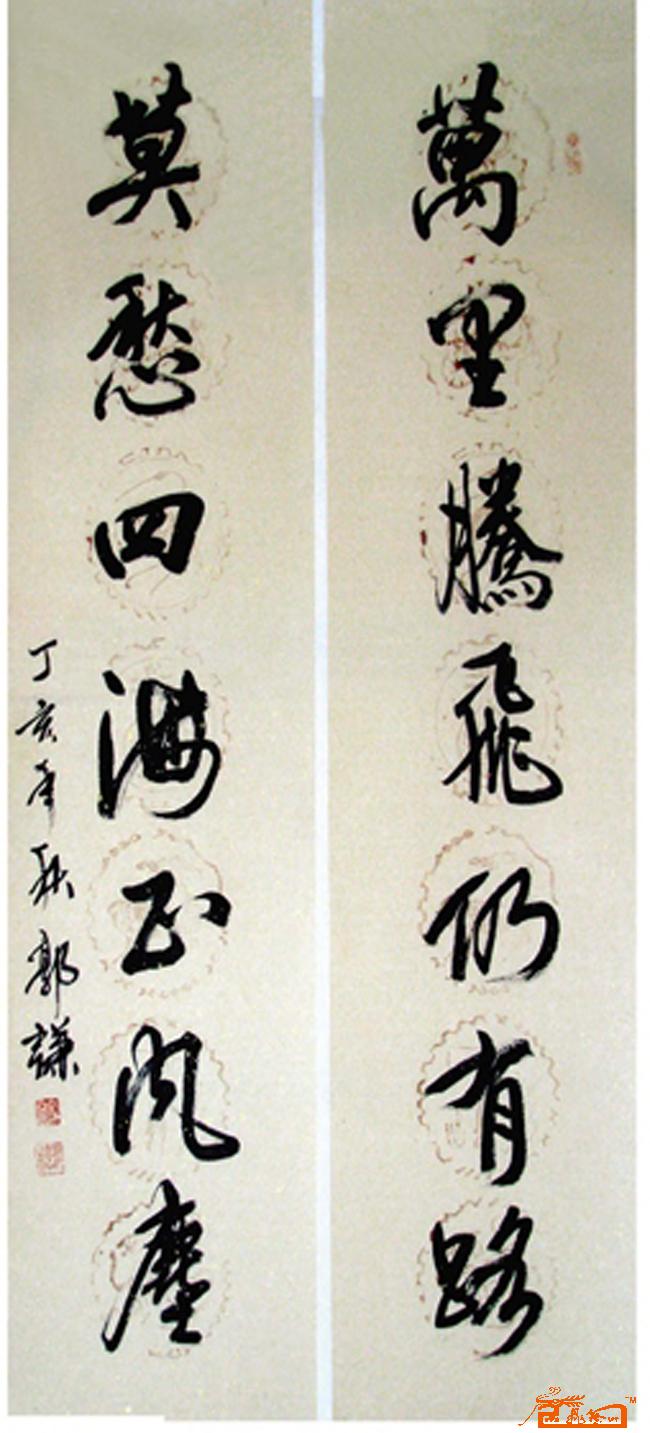 萬里騰飛仍有路
莫愁四海正風塵
丁亥年秋郭謙